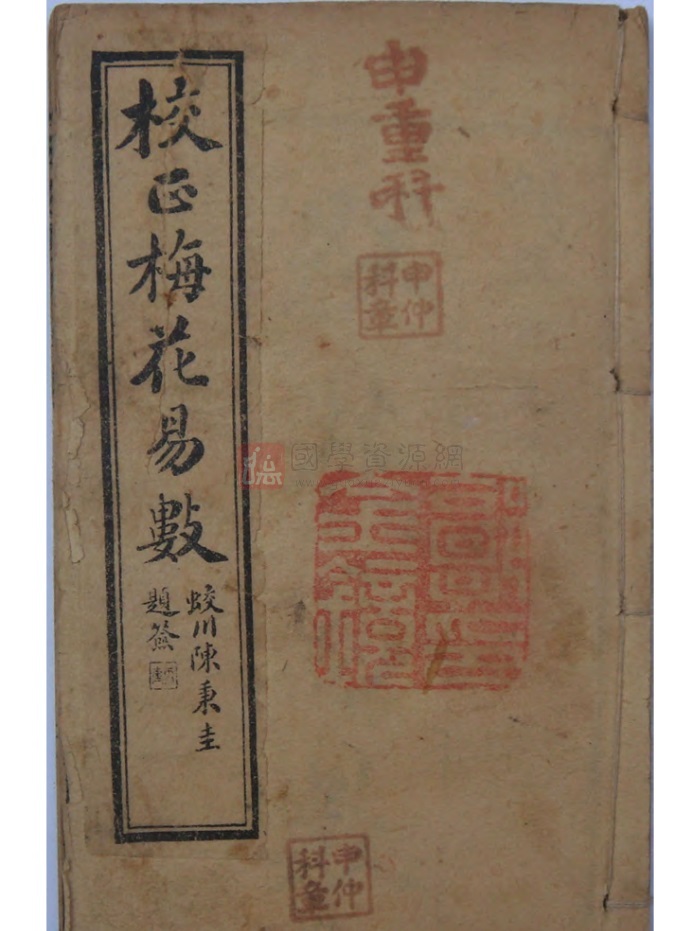 校正梅花易數
蛟川陳秉圭
題簽
申重科
申仲
科章
國學資源網
申仲
科章